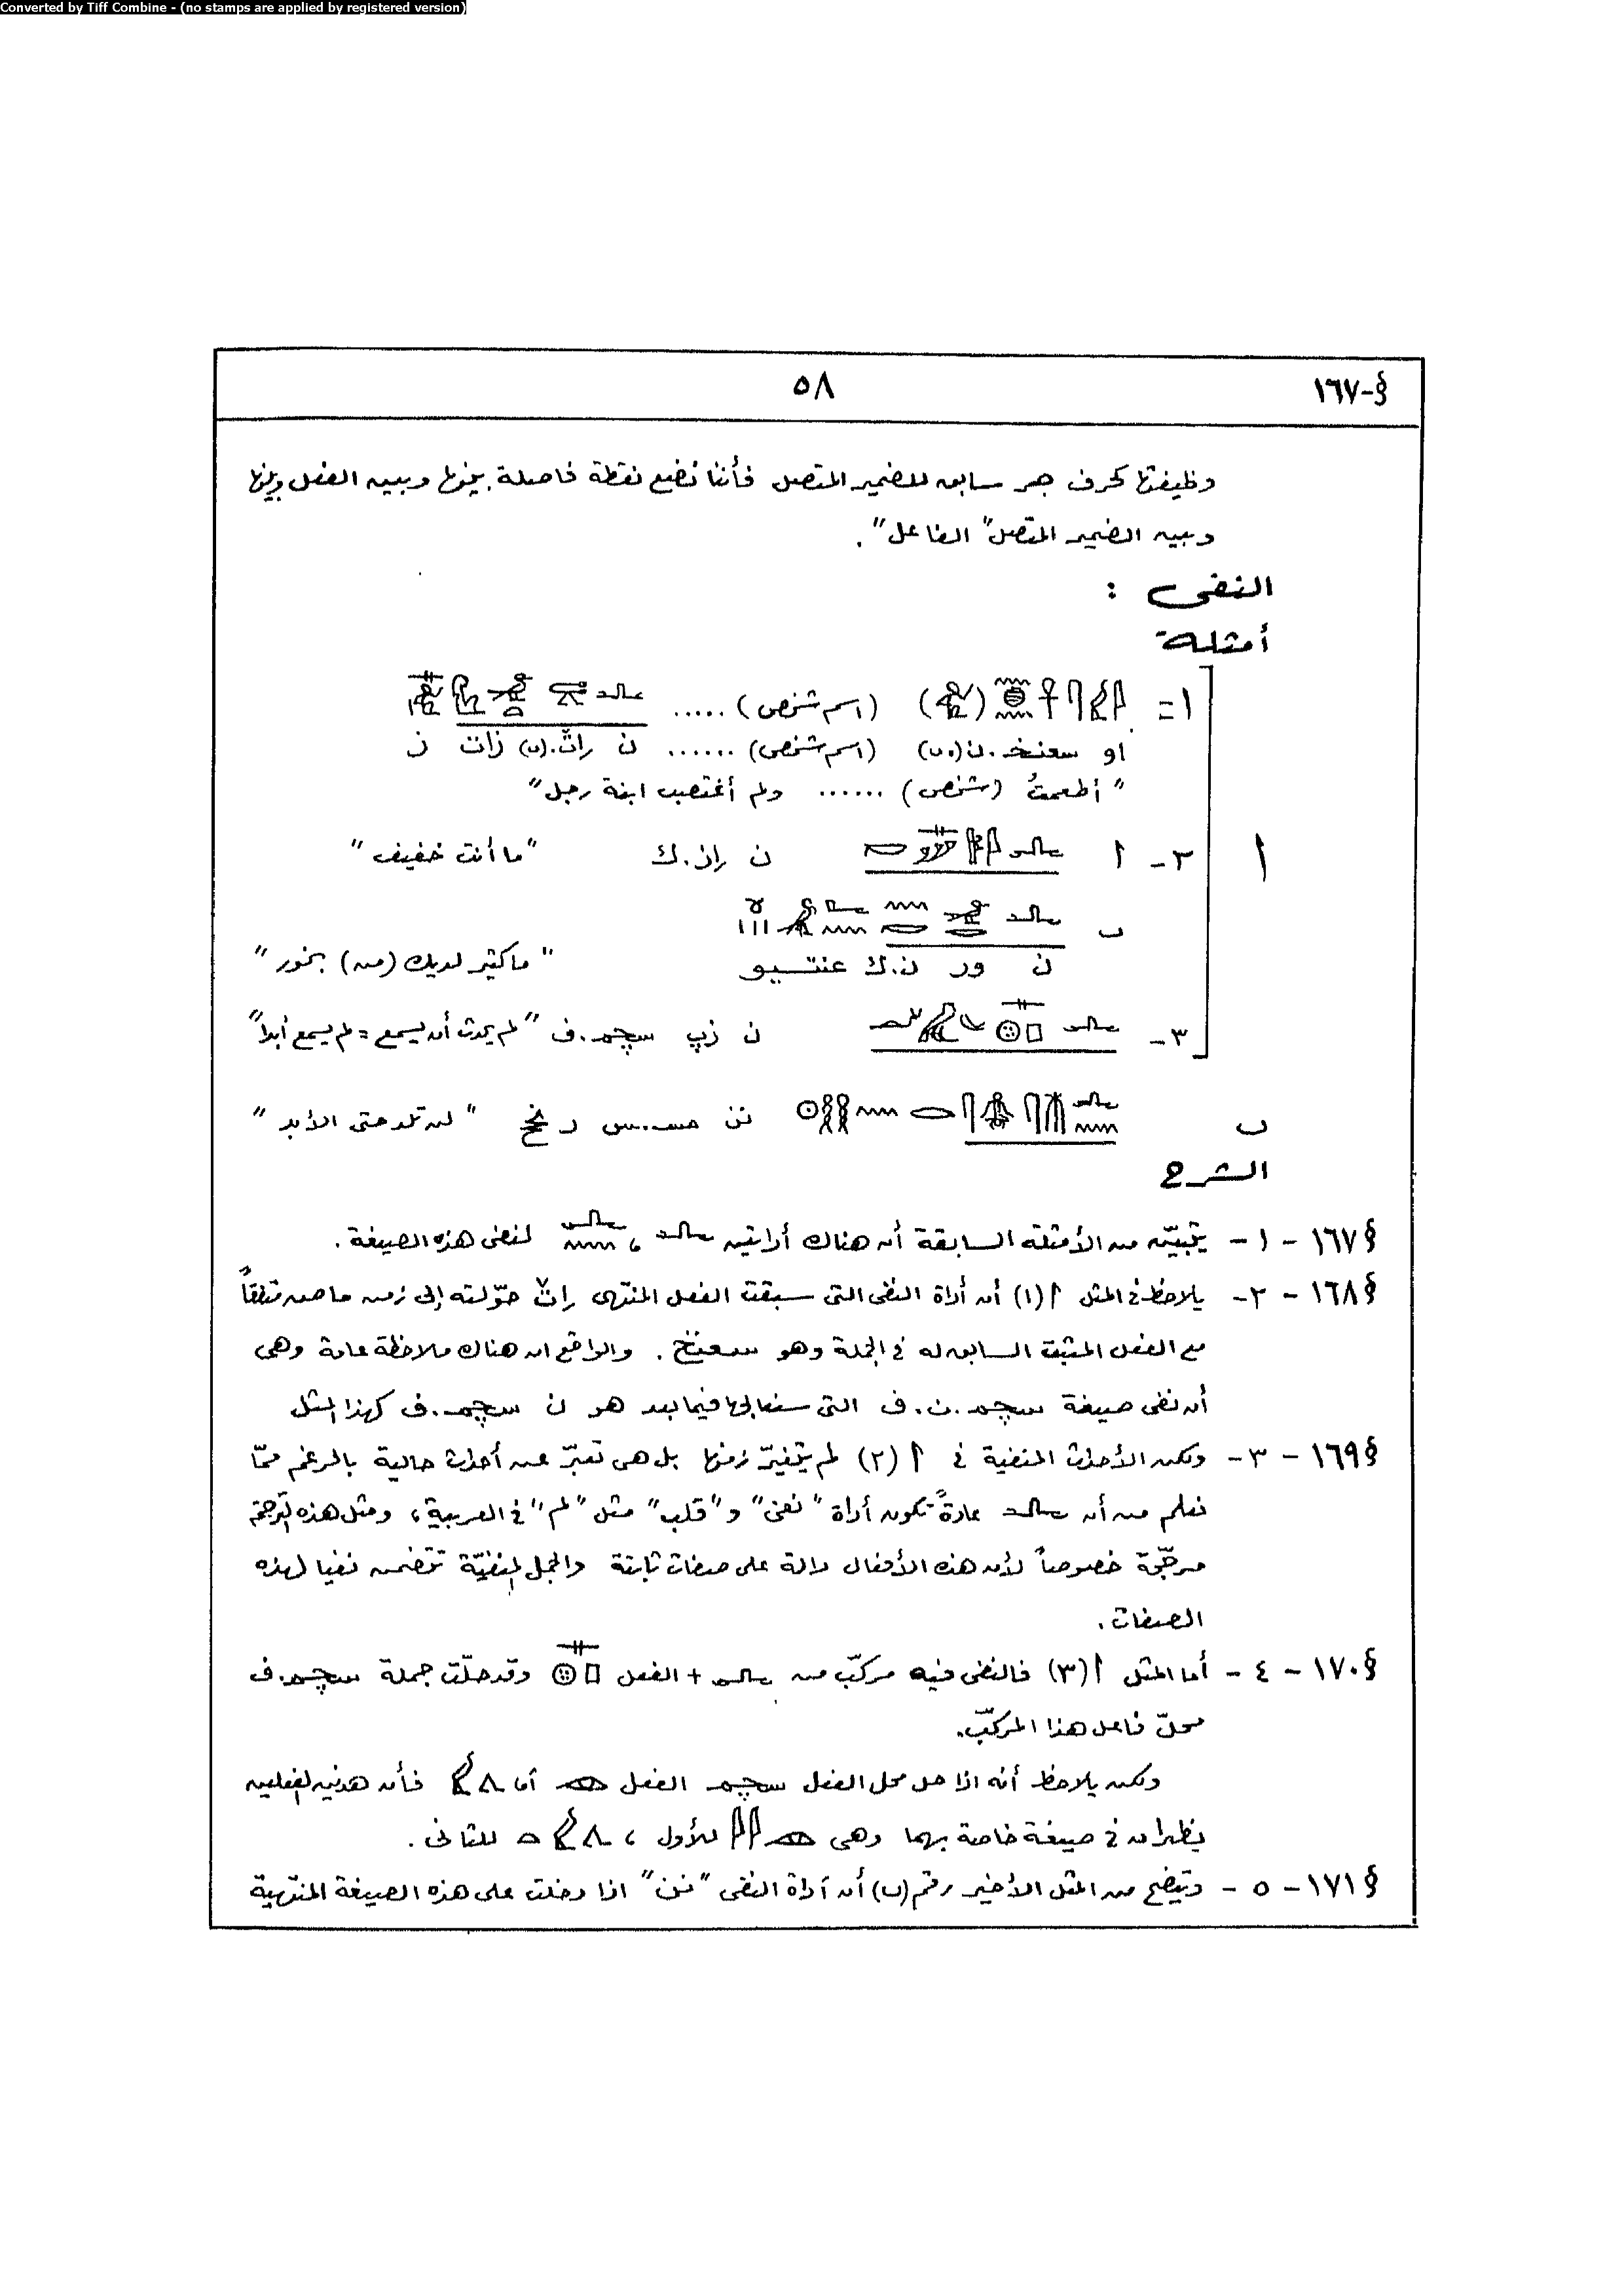 Converted by Tiff Combine - (no stamps are applied by registered version)
§-١٦٧
٥٨
وظيفتها كحرف جر سابق للضمير المتصل فأننا نضع نقطة فاصلة بينها وبين الفعل وبينها
وبين الضمير المتصل "الفاعل".
النفى :
أمثلة
١= (اسم شخص) .....
او سعنخ.ن(.ى) (اسم شخص) ...... ن زات ن
"أطعمتُ (شخص) ...... ولم أغتصب ابنة رجل"
أ
٢- أ ن راز.ك "ما أنت خفيف"
ب
ن ور ن.ك عنتيو "ما كثير لديك (من) بخور"
٣- ن زپ سچم.ف "لم يحدث أن يسمع = لم يسمع أبداً"
ب نن مس.س ر نحح "لن تلد حتى الأبد"
الشرح
§١٦٧ - ١- يتبيّن من الأمثلة السابقة أن هناك أداتين ، لنفى هذه الصيغة.
§١٦٨ - ٢- يلاحظ فى المثل أ(١) أن أداة النفى التى سبقت الفعل المنتهى حوّلته إلى زمن ماض متفقاً
مع الفعل المثبت السابق له فى الجملة وهو سعنخ. والواقع ان هناك ملاحظة عامة وهى
أن نفى صيغة سچم.ن.ف التى سنعالجها فيما بعد هو ن سچم.ف كهذا المثل
§١٦٩ - ٣- ولكن الأحداث المنفية فى أ(٢) لم يتغيّر زمنها بل هى تعبّر عن أحداث حالية بالرغم ممّا
نعلم من أن عادةً تكون أداة "نفى" و"قلب" مثل "لم" فى العربية، ومثل هذه الترجمة
مرجّحة خصوصاً لأن هذه الأفعال دالة على صفات ثابتة والجمل المنفيّة تتضمن نفيا لهذه
الصفات.
§١٧٠ - ٤- أما المثل أ(٣) فالنفى فيه مركّب من + الفعل وقد حلّت جملة سچم.ف
محلّ فاعل هذا المركّب.
ولكن يلاحظ أنه اذا حل محل الفعل سچم الفعل أما فأن هذين الفعلين
يظهران فى صيغة خاصة بهما وهى للأول ، للثانى.
§١٧١ - ٥- ويتضح من المثل الأخير رقم (ب) أن أداة النفى "نن" اذا دخلت على هذه الصيغة المنتهية